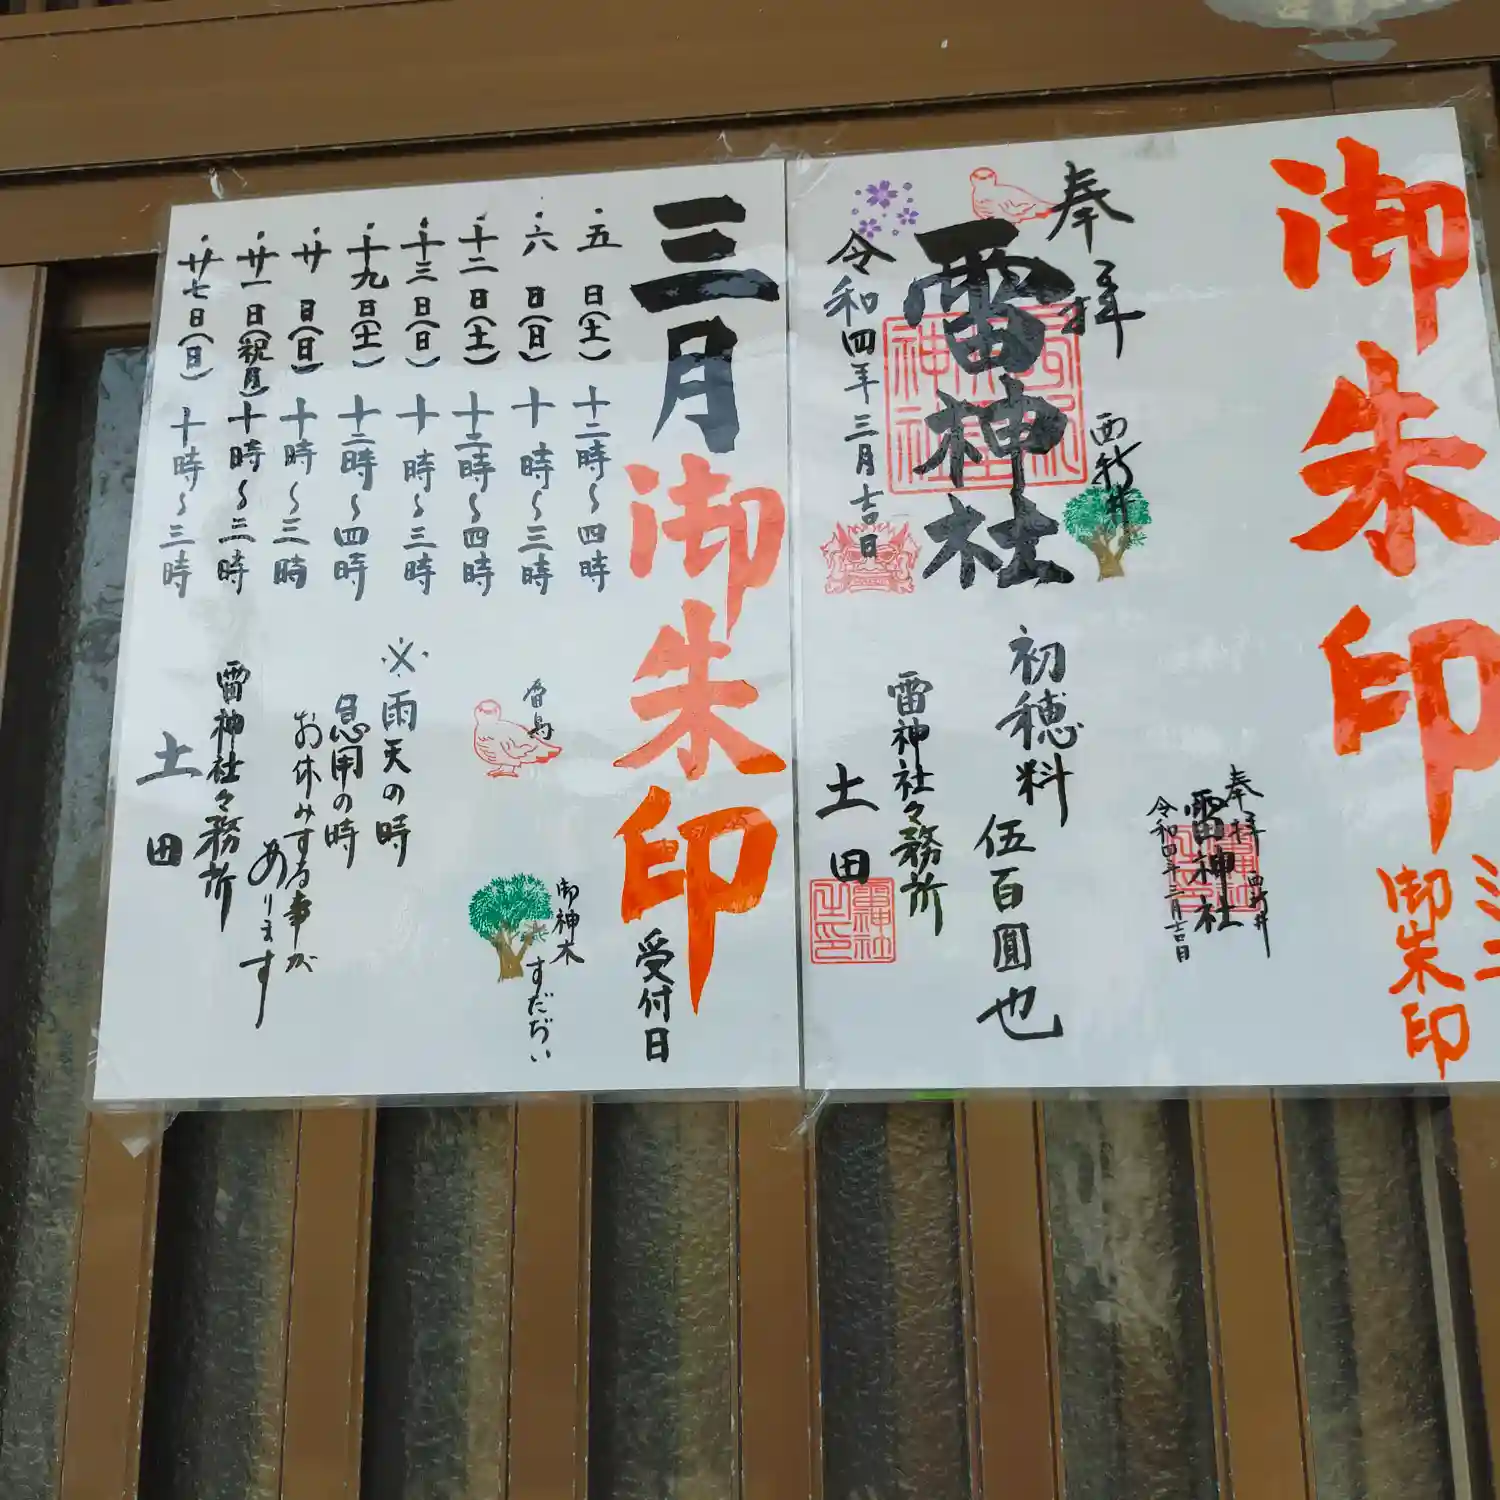 御朱印
ミニ
御朱印
奉拝
西新井
雷神社
令和四年三月吉日
初穂料
伍百圓也
雷神社々務所
土田
奉拝
西新井
雷神社
令和四年三月吉日
三月御朱印受付日
・五日(土)十二時〜四時
・六日(日)十時〜三時
・十二日(土)十二時〜四時
・十三日(日)十時〜三時
・十九日(土)十二時〜四時
・廿日(日)十時〜三時
・廿一日(祝月)十時〜三時
・廿七日(日)十時〜三時
雷鳥
御神木
すだぢい
※雨天の時
急用の時
お休みする事が
あります
雷神社々務所
土田